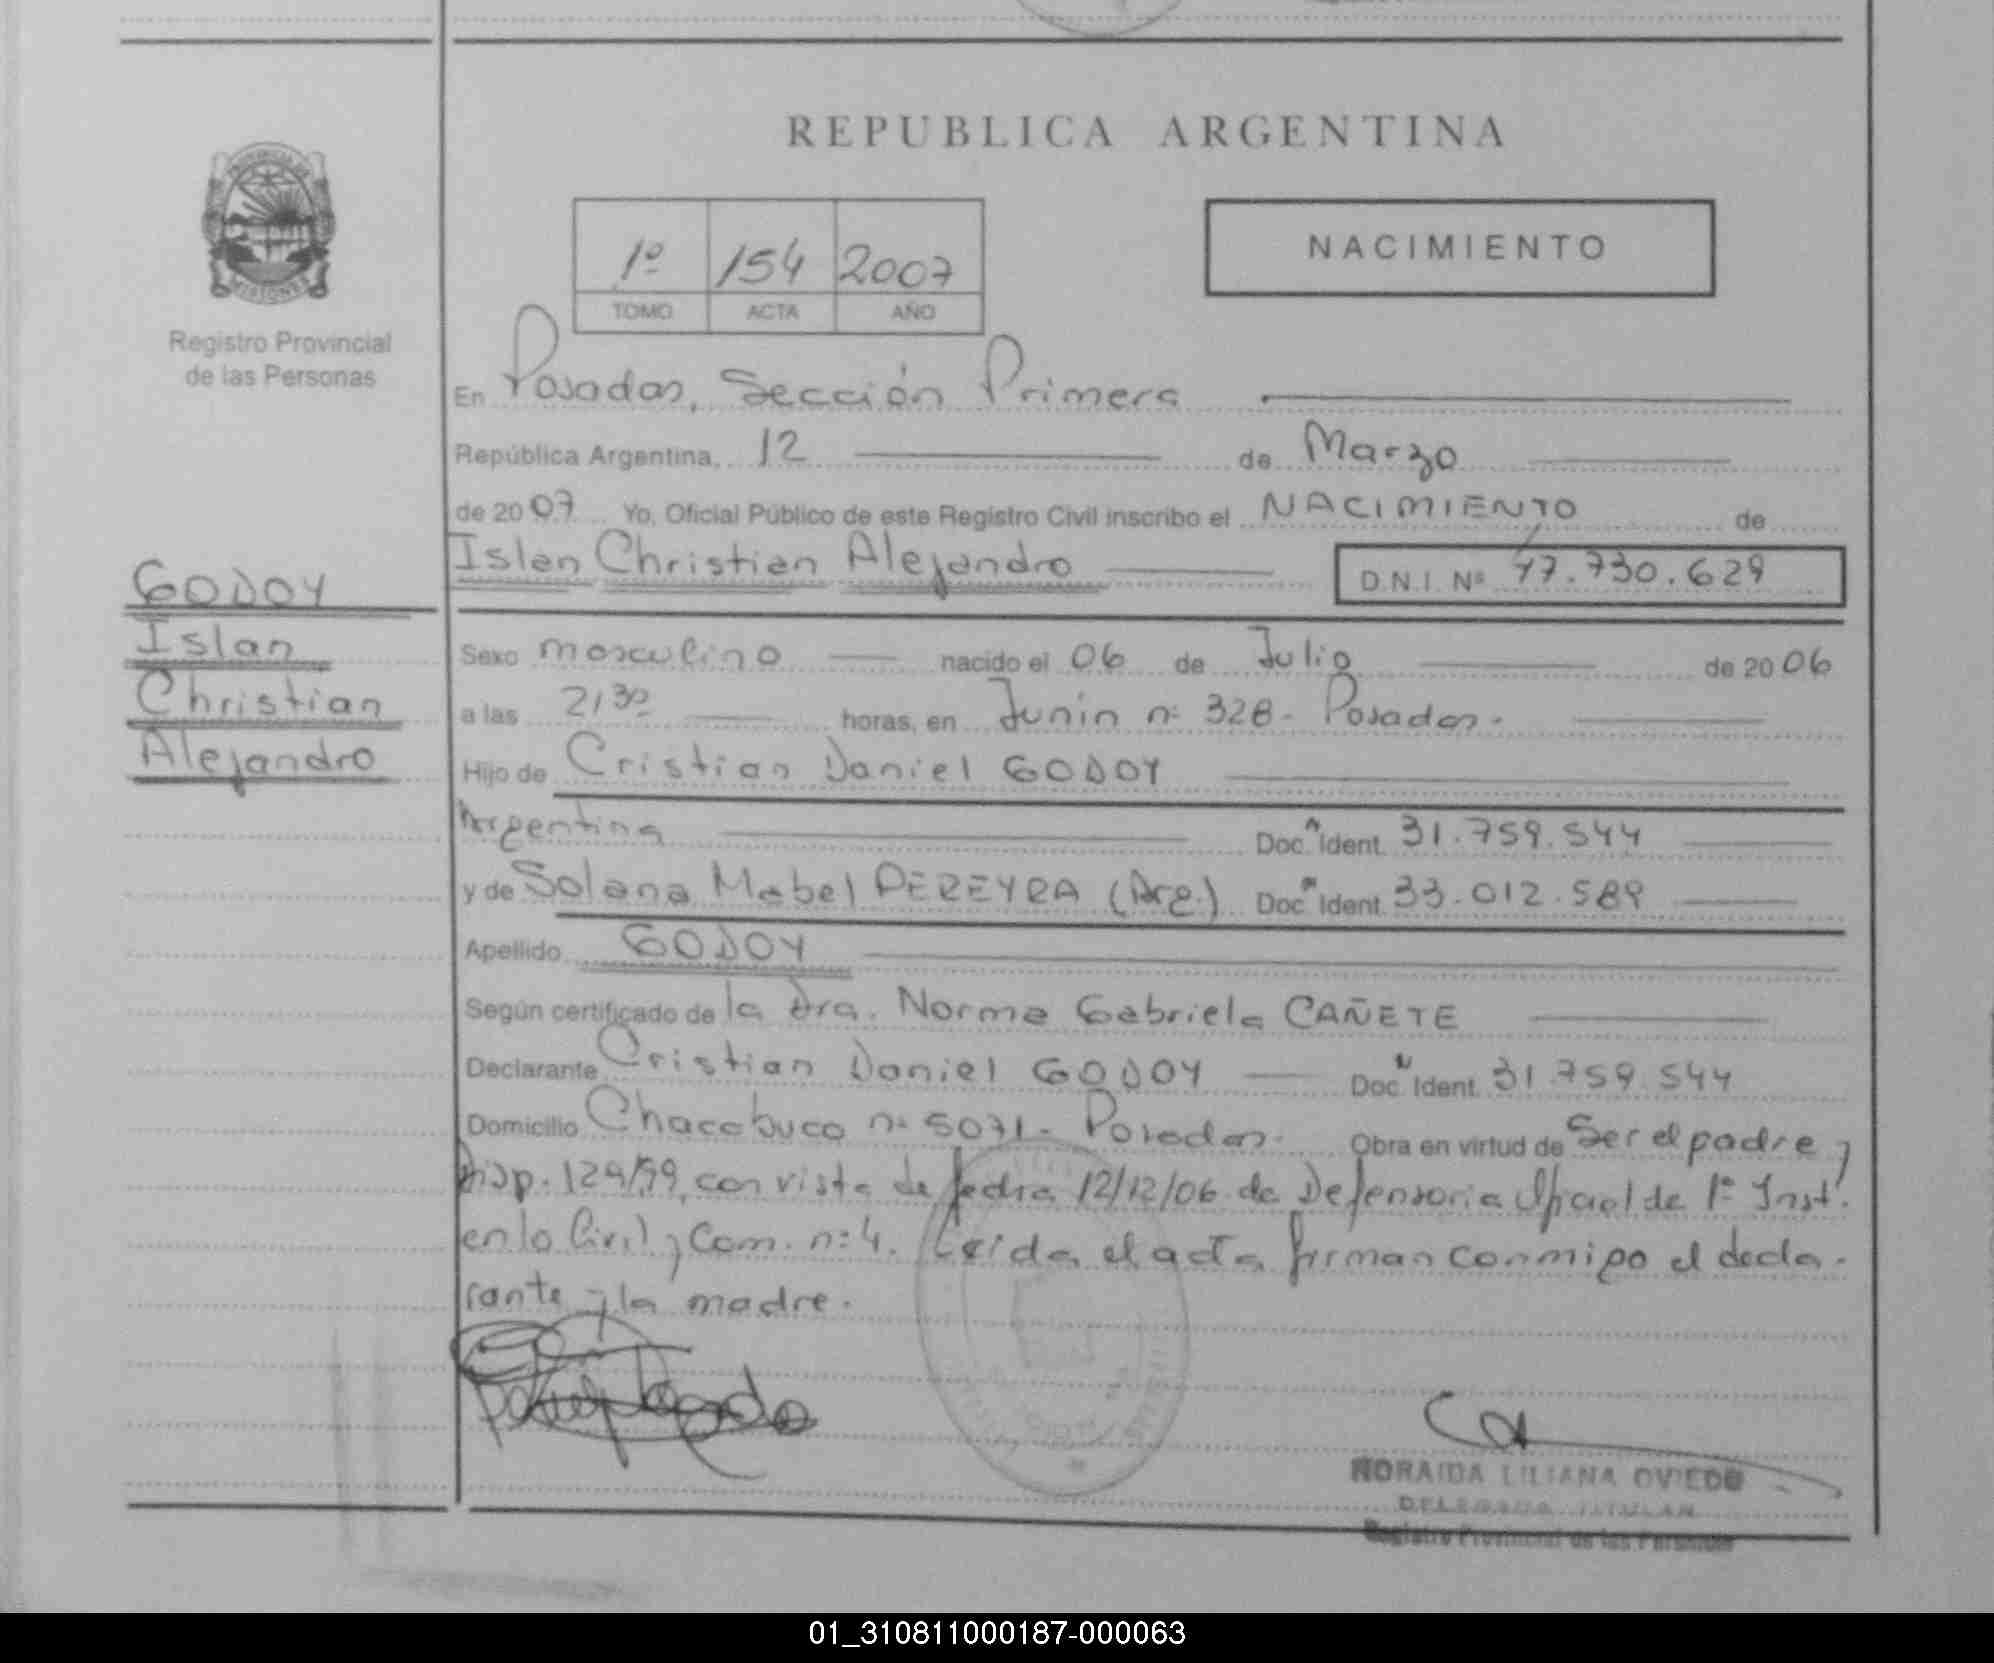 REPUBLICA ARGENTINA
1º 154 2007
TOMO ACTA AÑO
NACIMIENTO
MISIONES
Registro Provincial
de las Personas
En Posadas, Sección Primera
República Argentina, 12 de Marzo
de 2007 Yo, Oficial Público de este Registro Civil inscribo el NACIMIENTO de
Islan Christian Alejandro D.N.I. Nº 47.730.629
GODOY
Islan
Christian
Alejandro
Sexo masculino nacido el 06 de Julio de 2006
a las 21 30 horas, en Junín nº 328 - Posadas.
Hijo de Cristian Daniel GODOY
Argentina Doc. Ident. 31.759.544
y de Solana Mabel PEREYRA (Arg.) Doc. Ident. 33.012.589
Apellido GODOY
Según certificado de la Dra. Norma Gabriela CAÑETE
Declarante Cristian Daniel GODOY Doc. Ident. 31.759.544
Domicilio Chacabuco nº 5071 - Posadas. Obra en virtud de Ser el padre y
Disp. 129/99, con vista de fecha 12/12/06 de Defensoria Oficial de 1º Inst.
en lo Civil y Com. nº 4. Leída el acta firman conmigo el decla-
rante y la madre.
NORAIDA LILIANA OVIEDO
DELEGADA TITULAR
Registro Provincial de las Personas
01_310811000187-000063